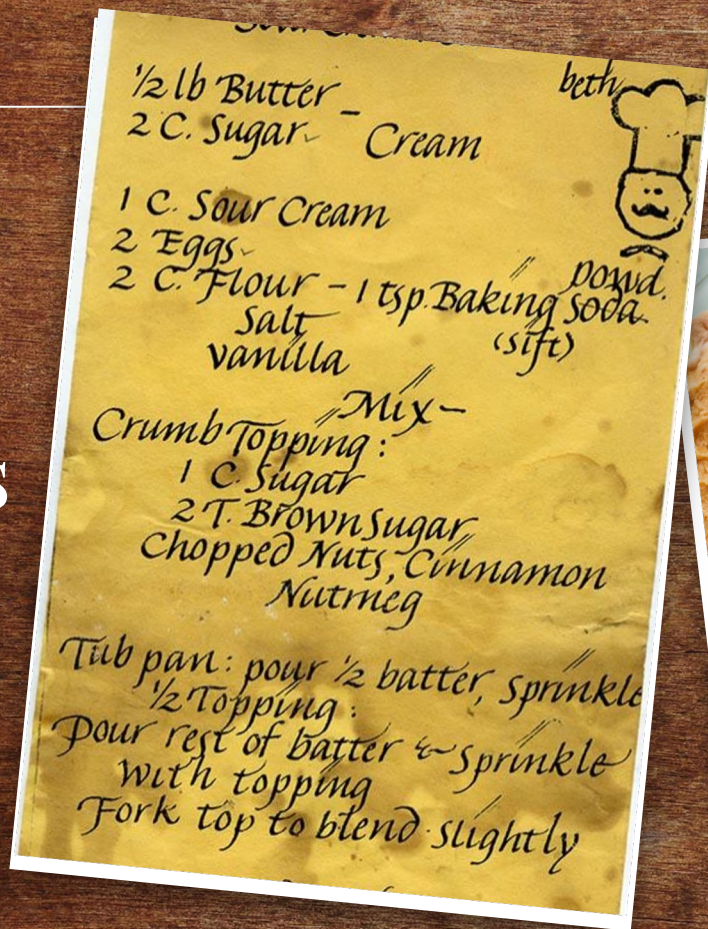 Sour Cream
beth
1/2 lb Butter –
2 C. Sugar Cream
1 C. Sour Cream
2 Eggs
2 C. Flour – 1 tsp. Baking powd. soda
Salt (sift)
vanilla
Mix –
Crumb Topping:
1 C. Sugar
2 T. Brown Sugar
Chopped Nuts, Cinnamon
Nutmeg
Tub pan: pour 1/2 batter, Sprinkle
1/2 Topping:
Pour rest of batter & Sprinkle
with topping
Fork top to blend slightly
s